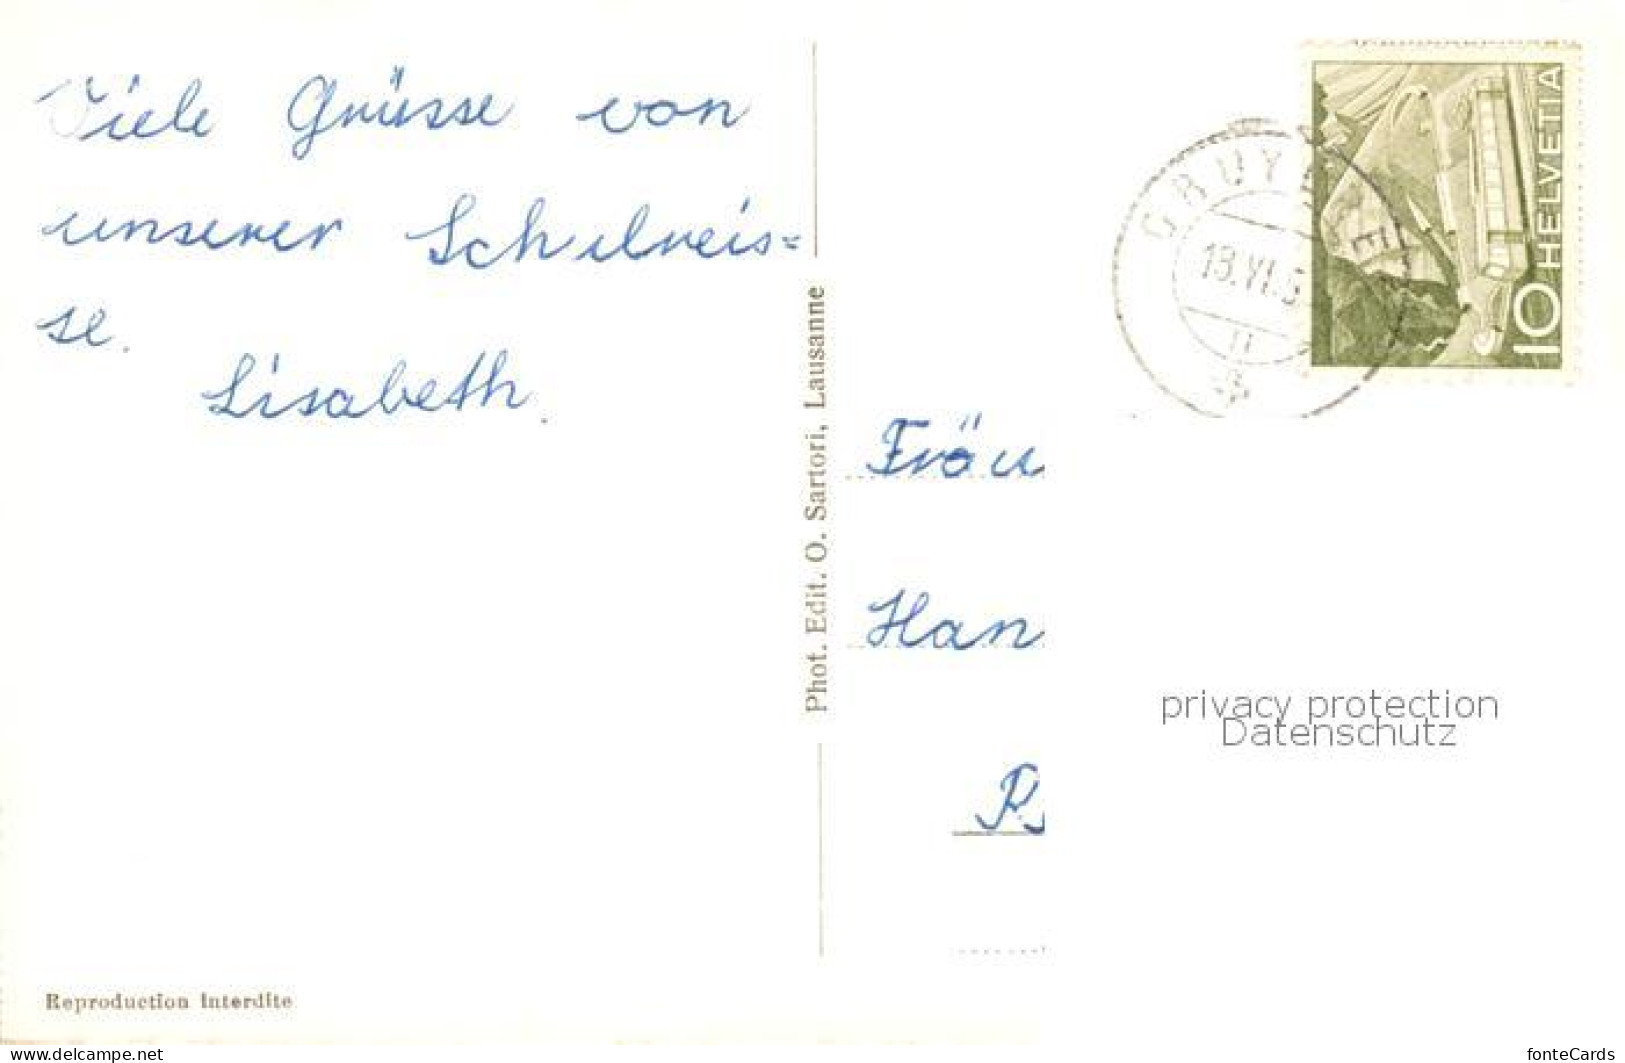 Viele Grüsse von
unserer Schulreis=
se.
Lisabeth.
Phot. Edit. O. Sartori, Lausanne
Reproduction interdite
HELVETIA
10
GRUYERE
13.VI.5
Fräu
Han
privacy protection
Datenschutz
www.delcampe.net
fonteCards